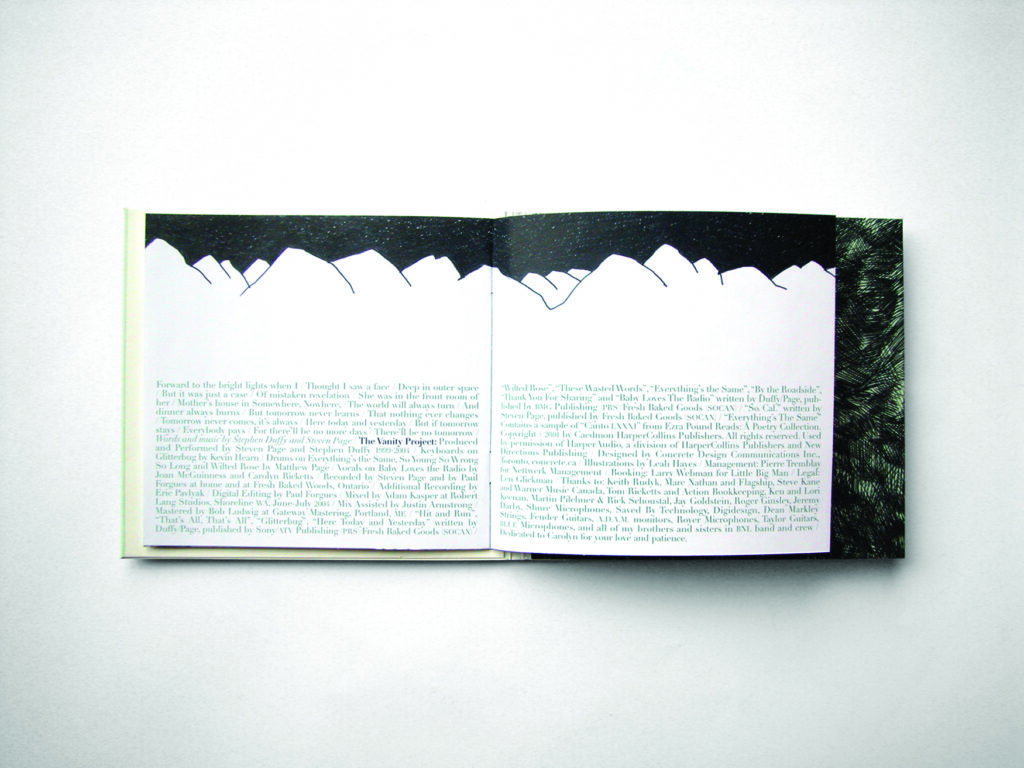 Forward to the bright lights when I / Thought I saw a face / Deep in outer space
/ But it was just a case / Of mistaken revelation / She was in the front room of
her / Mother's house in Somewhere, Nowhere, / The world will always turn / And
dinner always burns / But tomorrow never learns / That nothing ever changes
/ Tomorrow never comes, it's always / Here today and yesterday / But if tomorrow
stays / Everybody pays / For there'll be no more days / There'll be no tomorrow /
Words and music by Stephen Duffy and Steven Page The Vanity Project: Produced
and Performed by Steven Page and Stephen Duffy 1999-2004 / Keyboards on
Glitterbog by Kevin Hearn / Drums on Everything's the Same, So Young So Wrong
So Long and Wilted Rose by Matthew Page / Vocals on Baby Loves the Radio by
Joan McGuinness and Carolyn Ricketts / Recorded by Steven Page and by Paul
Forgues at home and at Fresh Baked Woods, Ontario / Additional Recording by
Eric Pavlyak / Digital Editing by Paul Forgues / Mixed by Adam Kasper at Robert
Lang Studios, Shoreline WA, June-July 2004 / Mix Assisted by Justin Armstrong /
Mastered by Bob Ludwig at Gateway Mastering, Portland, ME / "Hit and Run",
"That's All, That's All", "Glitterbug", "Here Today and Yesterday" written by
Duffy/Page, published by Sony/ATV Publishing (PRS)/Fresh Baked Goods (SOCAN) /
"Wilted Rose", "These Wasted Words", "Everything's the Same", "By the Roadside",
"Thank You For Sharing" and "Baby Loves The Radio" written by Duffy/Page, pub-
lished by BMG Publishing (PRS)/Fresh Baked Goods (SOCAN) / "So.Cal." written by
Steven Page, published by Fresh Baked Goods (SOCAN) / "Everything's The Same"
Contains a sample of "Canto LXXXI" from Ezra Pound Reads: A Poetry Collection,
Copyright / 2001 by Caedmon/HarperCollins Publishers. All rights reserved. Used
by permission of Harper Audio, a division of HarperCollins Publishers and New
Directions Publishing / Designed by Concrete Design Communications Inc.,
Toronto, concrete.ca / Illustrations by Leah Hayes / Management: Pierre Tremblay
for Nettwerk Management / Booking: Larry Webman for Little Big Man / Legal:
Len Glickman / Thanks to: Keith Rudyk, Marc Nathan and Flagship, Steve Kane
and Warner Music Canada, Tom Ricketts and Action Bookkeeping, Ken and Lori
Keenan, Martin Pilchner & Rick Schoustal, Jay Goldstein, Roger Ginsley, Jeremy
Darby, Shure Microphones, Saved By Technology, Digidesign, Dean Markley
Strings, Fender Guitars, A.D.A.M. monitors, Royer Microphones, Taylor Guitars,
BLUE Microphones, and all of my brothers and sisters in BNL band and crew /
Dedicated to Carolyn for your love and patience.